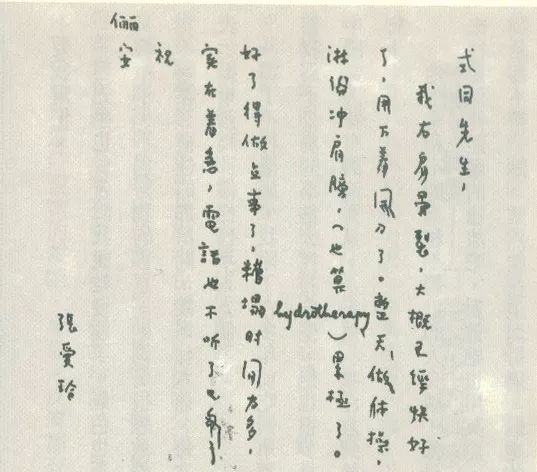 式同先生，
我右肩骨裂，大概已經快好
了，用不着開刀了。整天做体操，
淋浴冲肩膀，（也算hydrotherapy）累極了。
好了得做点事了，糟塌时間太多，
实在着急，電話也不听了
祝
俪安
張愛玲